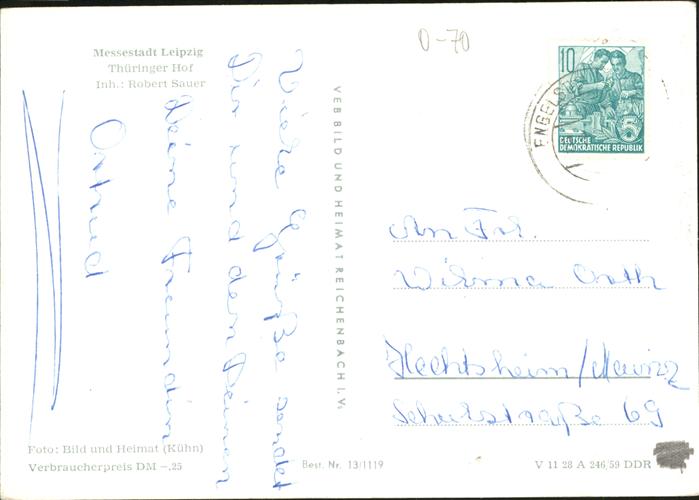 Messestadt Leipzig
Thüringer Hof
Inh.: Robert Sauer
Viele Grüße sendet
Dir und den Deinen
deine Freundin
VEB BILD UND HEIMAT REICHENBACH I. V.
0-70
10
DEUTSCHE
DEMOKRATISCHE REPUBLIK
5
ENGELS
An Frl.
Wilma Orth
Hechtsheim/Mainz
Schulstraße 69
Foto: Bild und Heimat (Kühn)
Verbraucherpreis DM –,25
Best. Nr. 13/1119
V 11 28 A 246/59 DDR